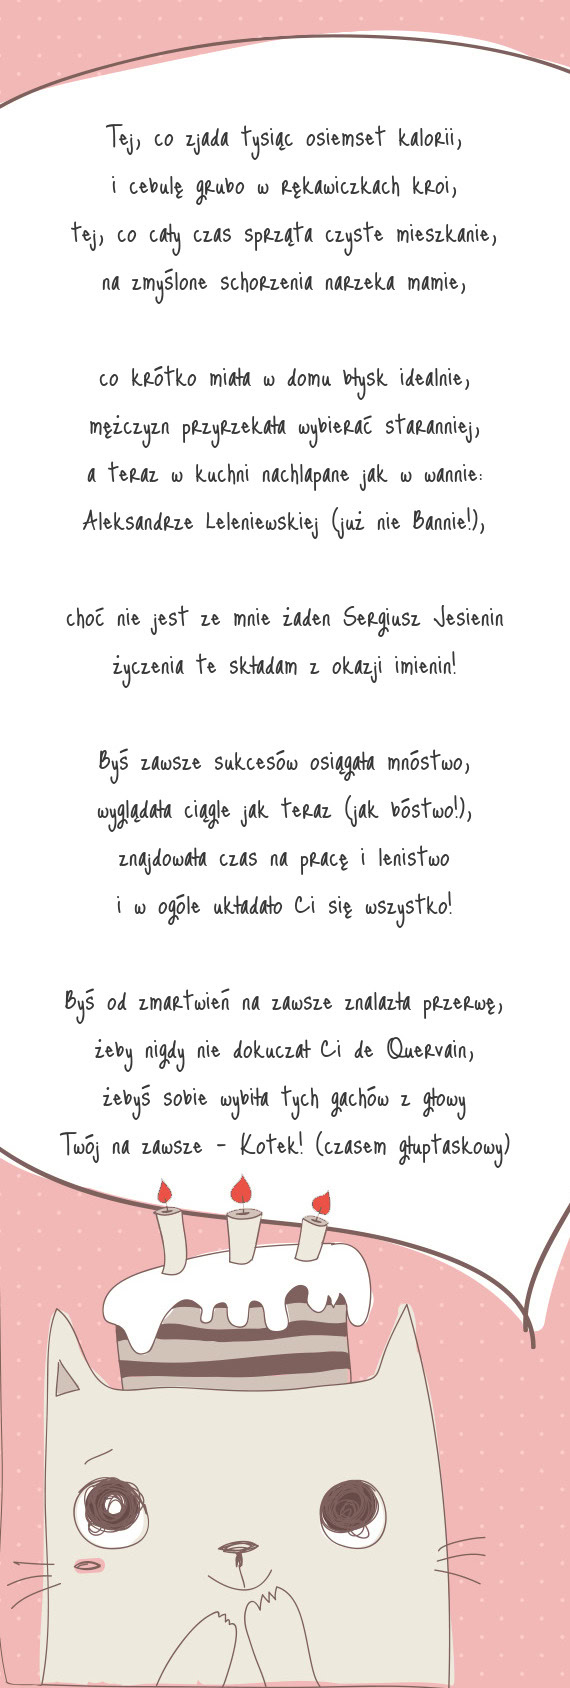 Tej, co zjada tysiąc osiemset kalorii,
i cebulę grubo w rękawiczkach kroi,
tej, co cały czas sprząta czyste mieszkanie,
na zmyślone schorzenia narzeka mamie,
co krótko miała w domu błysk idealnie,
mężczyzn przyrzekała wybierać staranniej,
a teraz w kuchni nachlapane jak w wannie:
Aleksandrze Leleniewskiej (już nie Bannie!),
choć nie jest ze mnie żaden Sergiusz Jesienin
życzenia te składam z okazji imienin!
Byś zawsze sukcesów osiągała mnóstwo,
wyglądała ciągle jak teraz (jak bóstwo!),
znajdowała czas na pracę i lenistwo
i w ogóle układało Ci się wszystko!
Byś od zmartwień na zawsze znalazła przerwę,
żeby nigdy nie dokuczał Ci de Quervain,
żebyś sobie wybiła tych gachów z głowy
Twój na zawsze - Kotek! (czasem głuptaskowy)